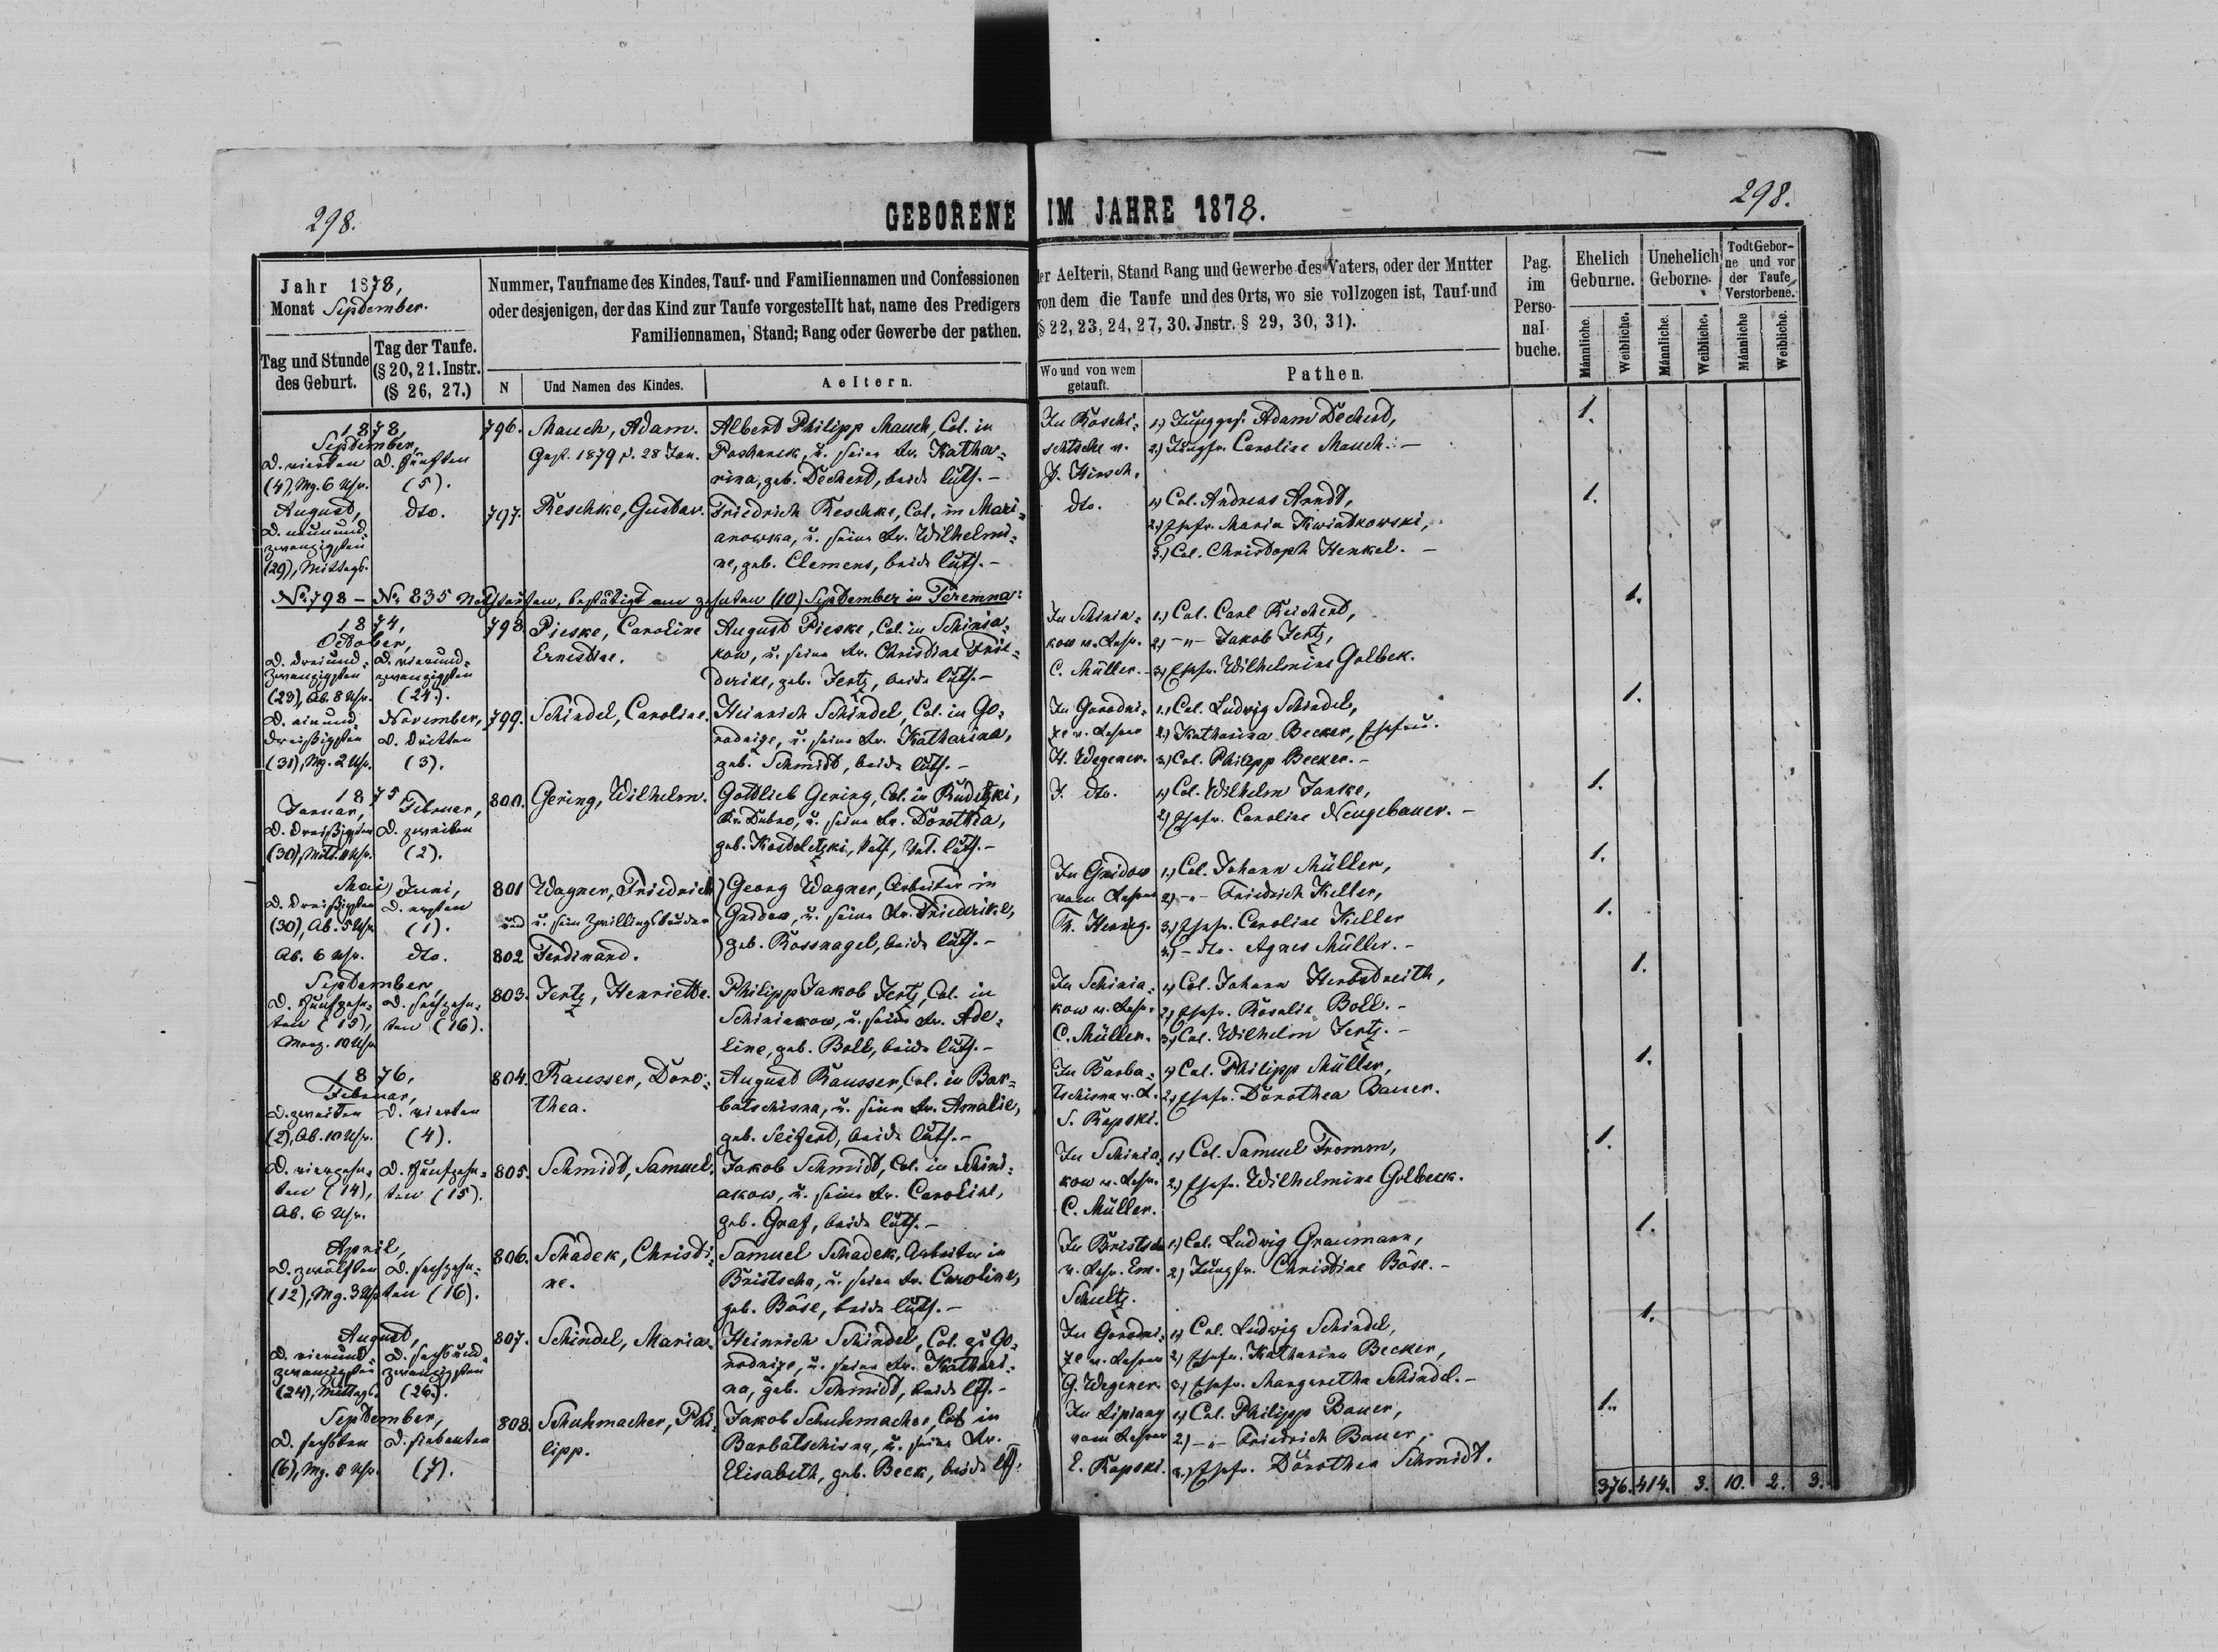 298.
GEBORENE IM JAHRE 1878.
298.
Jahr 1878,
Monat September.
Tag und Stunde des Geburt.
Tag der Taufe. (§ 20, 21. Instr. (§ 26, 27.)
Nummer, Taufname des Kindes, Tauf- und Familiennamen und Confessionen
oder desjenigen, der das Kind zur Taufe vorgestellt hat, name des Predigers
Familiennamen, Stand; Rang oder Gewerbe der pathen.
N
Und Namen des Kindes.
Aeltern.
der Aeltern, Stand Rang und Gewerbe des Vaters, oder der Mutter
von dem die Taufe und des Orts, wo sie vollzogen ist, Tauf-und
(§ 22, 23, 24, 27, 30. Jnstr. § 29, 30, 31).
Wo und von wem getauft.
Pathen.
Pag. im Perso- nal- buche.
Ehelich Geburne.
Unehelich Geborne.
Todt Gebor- ne und vor der Taufe Verstorbene.
Männliche.
Weibliche.
Männliche.
Weibliche.
Männliche
Weibliche.
1878,
September,
D. vierten
(4), Mg. 6 Uhr.
D. fünften
(5).
796.
Mauch, Adam.
Gest. 1879 d. 28 Jan.
Albert Philipp Mauch, Col. in
Poshanek, u. seine Fr. Katha-
rina, geb. Decherd, beide luth. –
In Roschi-
schtsche v.
P. Hirsch.
1.) Junggs. Adam Decherd,
2.) Jungfr. Caroline Mauch. –
1.
August,
D. neunund-
zwanzigsten
(29), Mittags.
dto.
797.
Reschke, Gustav.
Friedrich Reschke, Col. in Mari-
anowka, u. seine Fr. Wilhelmi-
ne, geb. Clemens, beide luth. –
dto.
1.) Col. Andreas Arndt,
2.) Ehefr. Maria Kwiatkowski,
3.) Col. Christoph Henkel. –
1.
No. 798 – No. 835 Nothtaufen, bestätigt am zehnten (10) September in Teremna:
1874,
October,
D. dreiund-
zwanzigsten
(23), Ab. 8 Uhr.
D. vierund-
zwanzigsten
(24).
798.
Pieske, Caroline
Ernestine.
August Pieske, Col. in Schinia-
kow, u. seine Fr. Christine Frie-
derike, geb. Jertz, beide luth. –
In Schinia-
kow v. Lehr.
C. Müller.
1.) Col. Carl Reicherd,
2.) –"– Jakob Jertz,
3.) Ehefr. Wilhelmine Golbek.
1.
D. einund-
dreißigsten
(31), Mg. 2 Uhr.
November,
D. dritten
(3).
799.
Schindel, Caroline.
Heinrich Schindel, Col. in Go-
rodnize, u. seine Fr. Katharina,
geb. Schmidt, beide luth. –
In Gorodni-
ze v. Lehrer
H. Wegener.
1.) Col. Ludwig Schindel,
2.) Katharina Becker, Ehefrau.
3.) Col. Philipp Becker. –
1.
1875
Januar,
D. dreißigsten
Februar,
D. zweiten
(2).
800.
Gering, Wilhelm.
Gottlieb Gering, Col. in Rudetzki,
Kr. Dubno, u. seine Fr. Dorothea,
dto.
1.) Col. Wilhelm Janke,
2.) Ehefr. Caroline Neugebauer. –
1.
Mai,
D. dreißigsten
(30), Ab. 5 Uhr
Ab. 6 Uhr.
Juni,
D. ersten
(1).
dto.
801
und
802
Wagner, Friedrich
u. sein Zwillingsbruder
Ferdinand.
Georg Wagner, Arbeiter in
Gridow, u. seine Fr. Friederike,
geb. Rossnagel, beide luth. –
In Gridow
vom Lehrer
1.) Col. Johann Müller,
2.) –"– Friedrich Keller,
3.) Ehefr. Caroline Keller
4.) – dto. Agnes Müller. –
1.
1.
September,
D. fünfzehn-
ten (15),
Morg. 10 Uhr
D. sechzehn-
ten (16).
803.
Jertz, Henriette.
Philipp Jakob Jertz, Col. in
Schiniakow, u. seine Fr. Ade-
line, geb. Boll, beide luth. –
In Schinia-
kow v. Lehr.
C. Müller.
1.) Col. Johann Herbstreith,
2.) Ehefr. Rosalie Boll. –
3.) Col. Wilhelm Jertz. –
1.
1876,
Februar,
D. zweiten
(2), Ab. 10 Uhr.
D. vierten
(4).
804.
Rausser, Doro-
thea.
August Rausser, Col. in Bar-
batschisna, u. seine Fr. Amalie,
geb. Seifert, beide luth. –
In Barba-
tschisna v. L.
S. Kapski.
1.) Col. Philipp Müller,
2.) Ehefr. Dorothea Bauer.
1.
D. vierzehn-
ten (14),
Ab. 6 Uhr.
D. fünfzehn-
ten (15).
805.
Schmidt, Samuel.
Jakob Schmidt, Col. in Schini-
akow, u. seine Fr. Caroline,
geb. Graf, beide luth. –
In Schinia-
kow v. Lehr.
C. Müller.
1.) Col. Samuel Fromm,
2.) Ehefr. Wilhelmine Golbeck.
1.
April,
D. zwölften
(12), Mg. 3 Uhr
D. sechzehn-
ten (16).
806.
Schadek, Christi-
ne.
Samuel Schadek, Arbeiter in
Bristscha, u. seine Fr. Caroline,
geb. Böse, beide luth. –
In Bristscha
v. Lehr. Em.
Schultz.
1.) Col. Ludwig Graumann,
2.) Jungfr. Christine Böse. –
1.
August,
D. vierund-
zwanzigsten
(24), Mittags.
D. sechsund-
zwanzigsten
(26.).
807.
Schindel, Maria.
Heinrich Schindel, Col. zu Go-
rodnize, u. seine Fr. Kathari-
na, geb. Schmidt, beide lth. –
In Gorodni-
ze v. Lehrer
G. Wegener.
1.) Col. Ludwig Schindel,
2.) Ehefr. Katharina Becker,
3.) Ehefr. Margaretha Schindel. –
1.
September,
D. sechsten
(6), Mg. 5 Uhr.
D. siebenten
(7).
808.
Schuhmacher, Phi-
lipp.
Jakob Schuhmacher, Col. in
Barbatschisna, u. seine Fr.
Elisabeth, geb. Beck, beide lth.
In Lipiany
vom Lehrer
E. Kapski.
1.) Col. Philipp Bauer,
2.) –"– Friedrich Bauer,
3.) Ehefr. Dorothea Schmidt.
1.
376. 414. 3. 10. 2. 3.